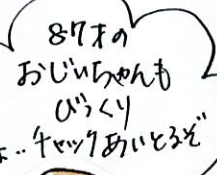 87才の
おじいちゃんも
びっくり
チャックあいとるぞ